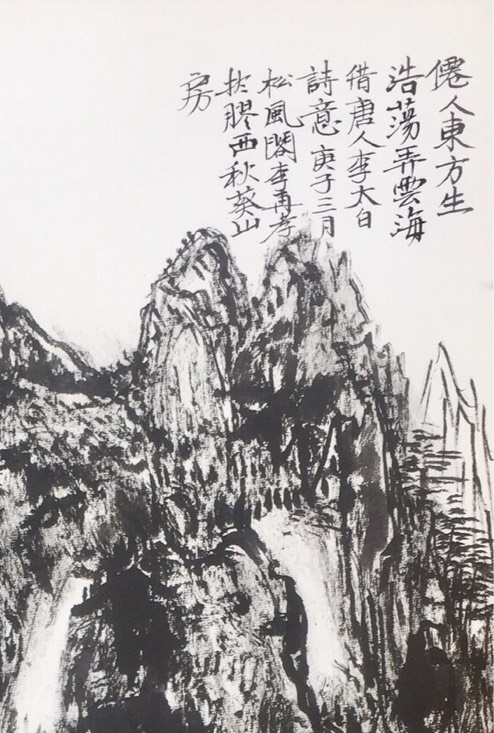 僊人東方生
浩蕩弄雲海
借唐人李太白
詩意庚子三月
松風閣李再孝
扵膠西秋葵山
房